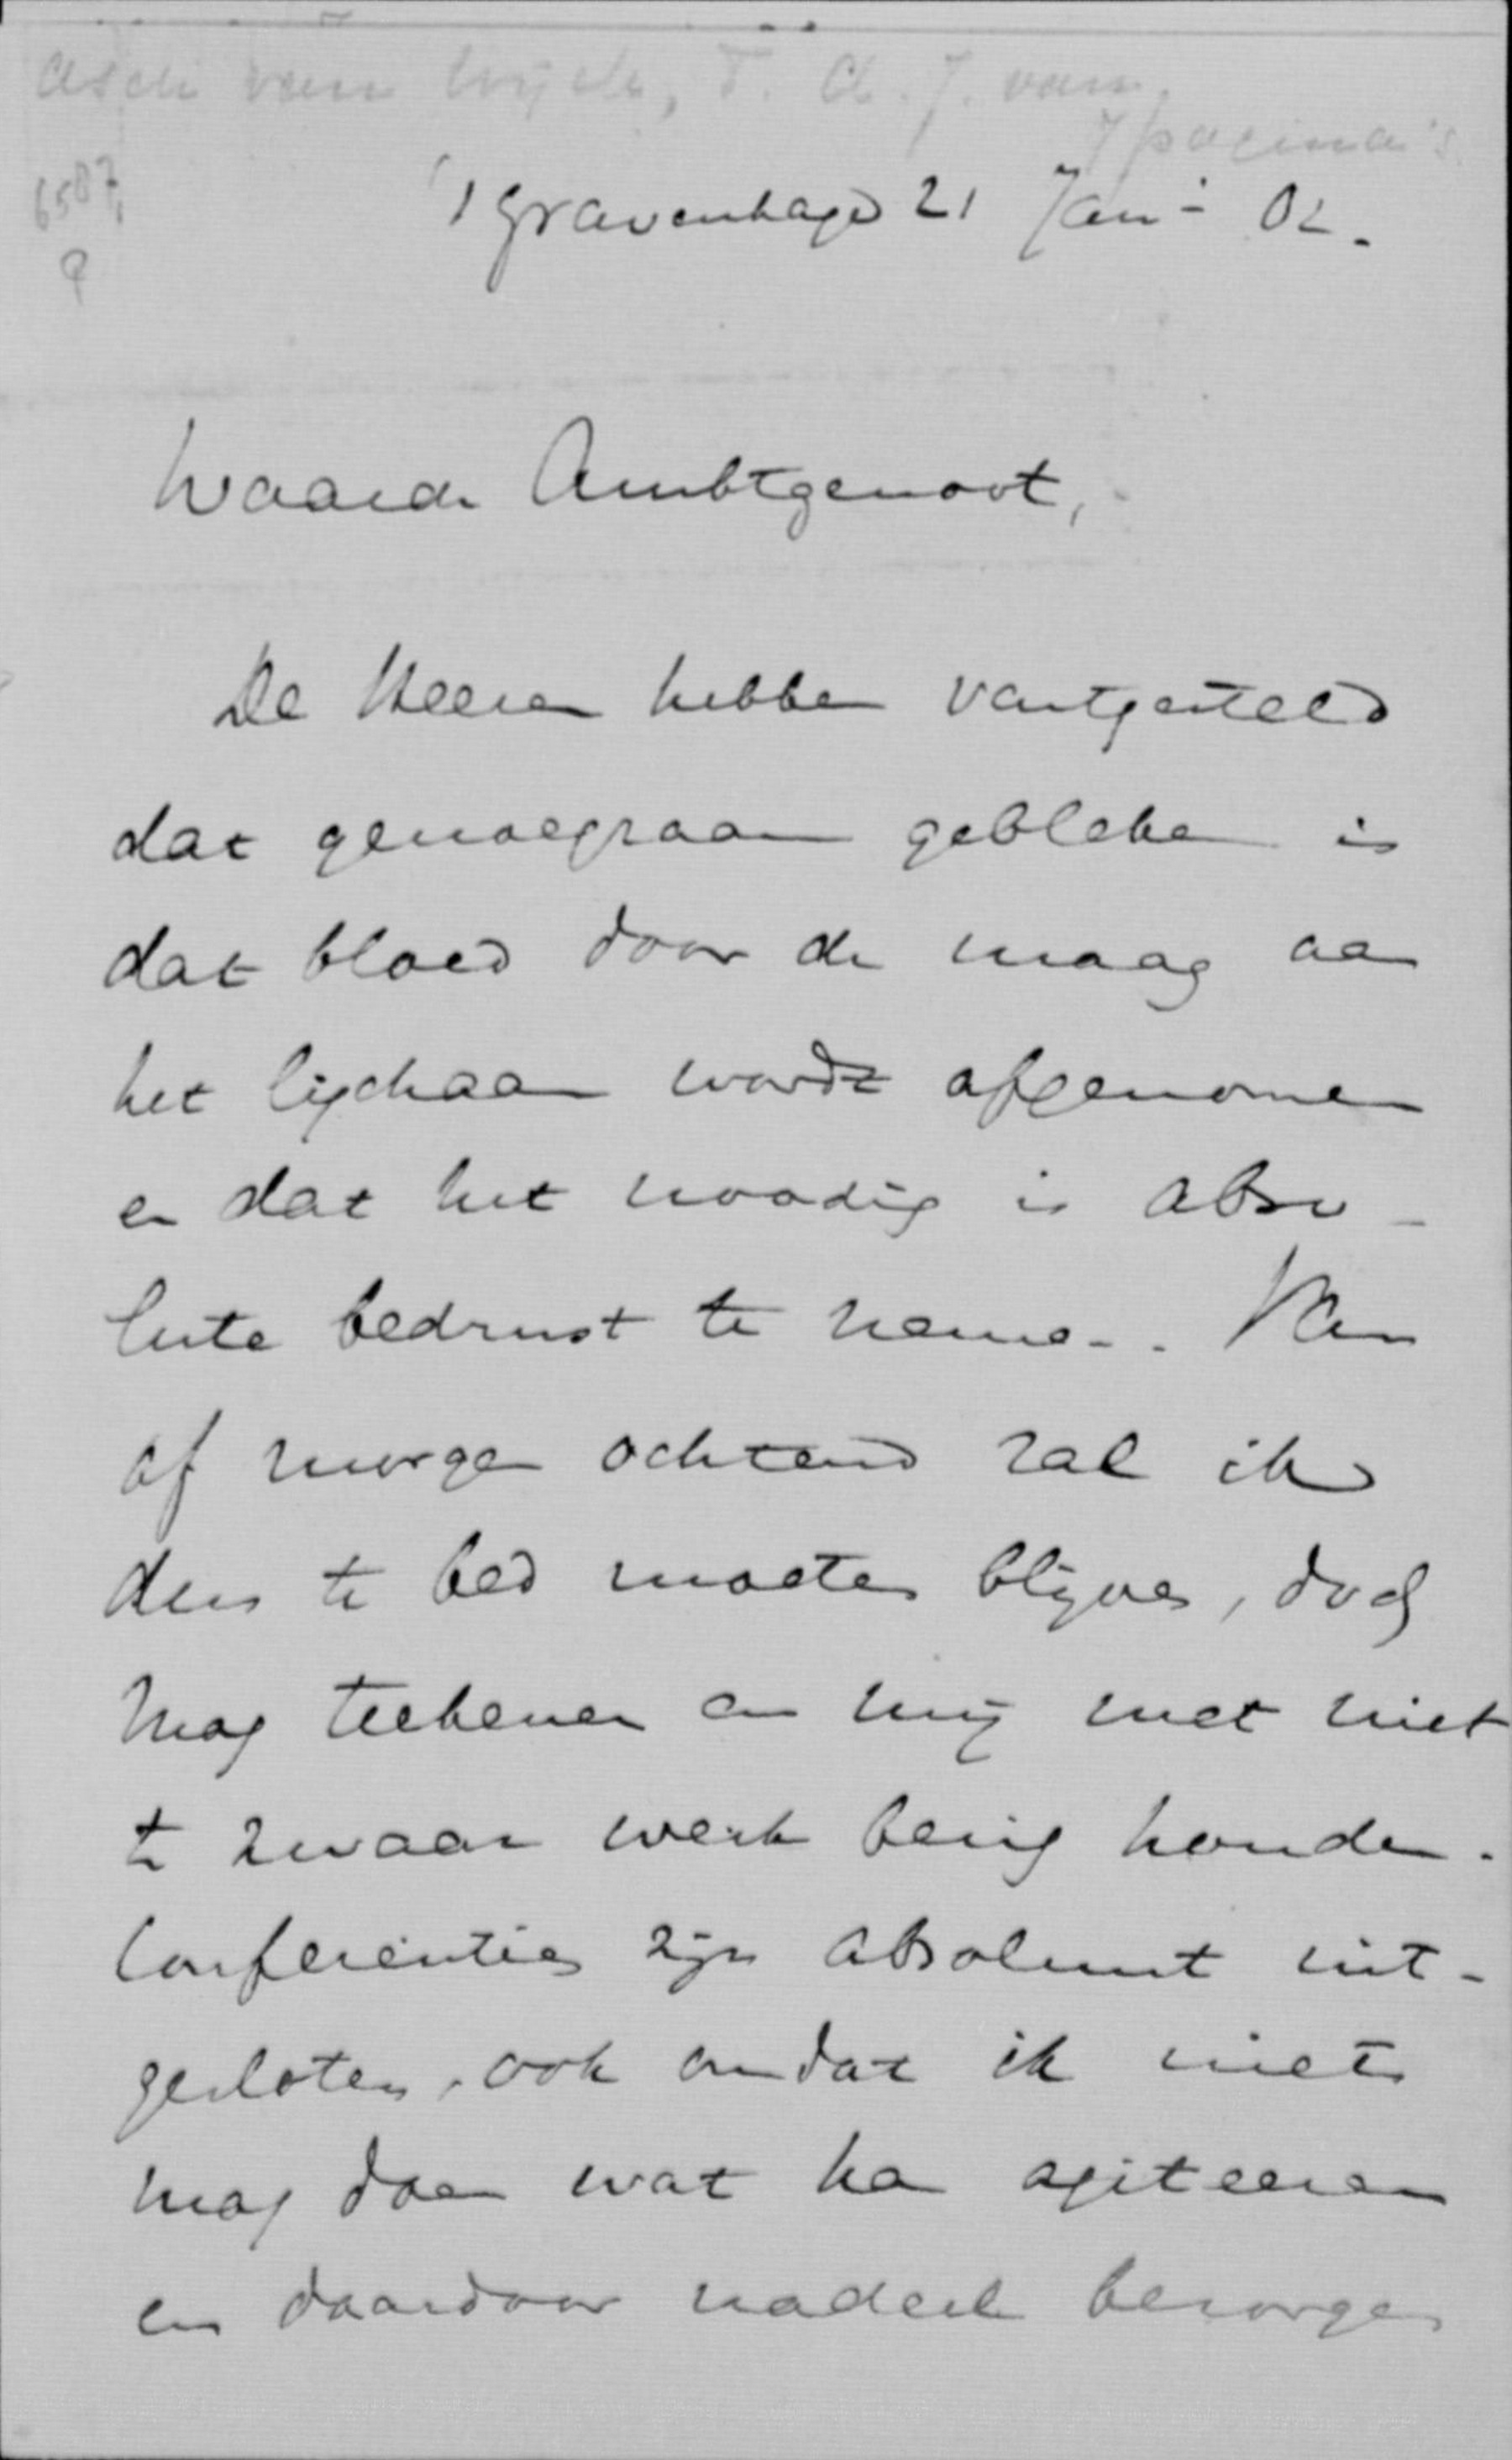 Asch van Wijck, T. A. J. van
7 pagina's
6587,
9
's Gravenhage 21 Jan - 02.
Waarde Ambtgenoot,
De Heeren hebben vastgesteld
dat genoegzaam gebleken is
dat bloed door de maag aan
het ligchaam wordt afgenomen
en dat het noodig is abso-
lute bedrust te nemen. Van
af morgen ochtend zal ik
dus te bed moeten blijven, doch
mag teekenen en mij met niet
te zwaar werk bezig houden.
Conferentiës zijn absoluut uit-
gesloten, ook omdat ik niets
mag doen wat kan agiteeren
en daardoor nadeel bezorgen